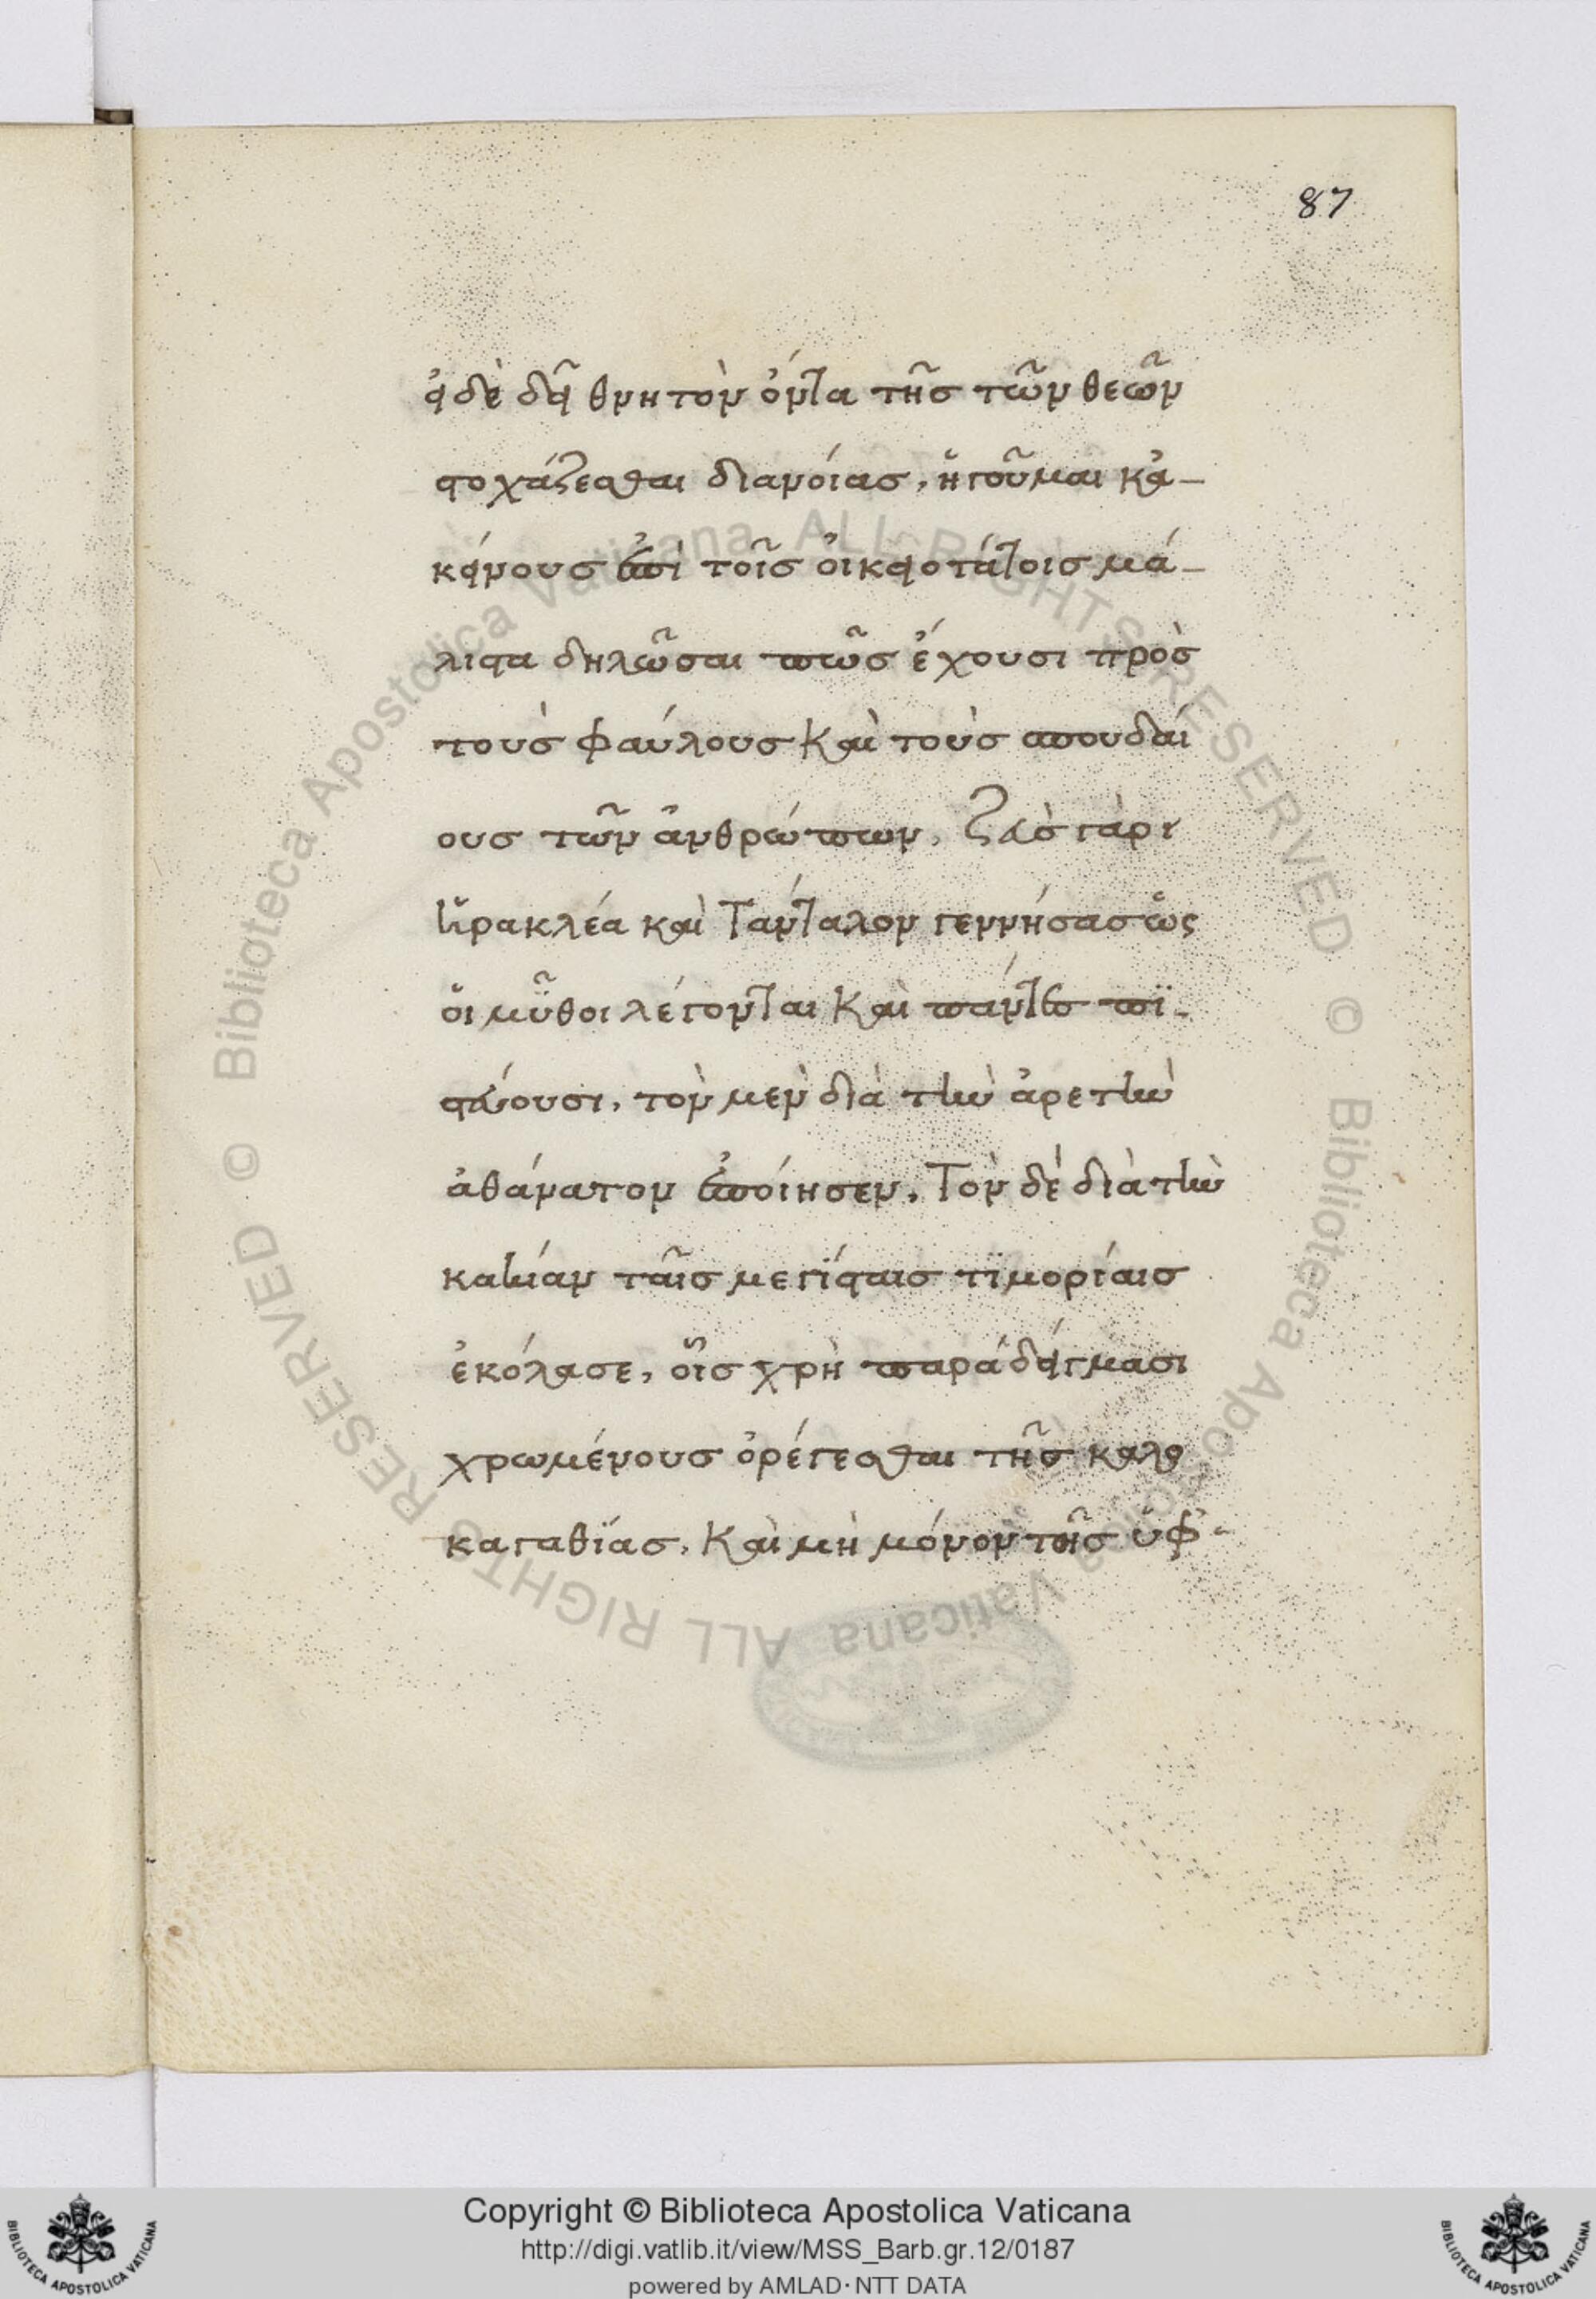 87
εἰ δὲ δεῖ θνητὸν ὄντα τῆς τῶν θεῶν
στοχάζεσθαι διανοίας, ἡγοῦμαι κἀ-
κείνους ἐπὶ τοῖς οἰκειοτάτοις μά-
λιστα δηλῶσαι πῶς ἔχουσι πρὸς
τοὺς φαύλους Καὶ τοὺς σπουδαί
ους τῶν ἀνθρώπων, Ζεὺς γὰρ
Ἡρακλέα καὶ Τάνταλον γεννήσας ὡς
οἱ μῦθοι λέγονται Καὶ πάντες πι-
στεύουσι, τὸν μὲν διὰ τὴν ἀρετὴν
ἀθάνατον ἐποίησεν, Τὸν δὲ διὰ τὴν
κακίαν ταῖς μεγίσταις τιμορίαις
ἐκόλασε, οἷς χρὴ παραδείγμασι
χρωμένους ὀρέγεσθαι τῆς καλο
καγαθίας, Καὶ μὴ μόνον τοῖς ὑφ'
Biblioteca Apostolica Vaticana ALL RIGHTS RESERVED ©
Biblioteca Apostolica Vaticana ALL RIGHTS RESERVED ©
Copyright © Biblioteca Apostolica Vaticana
http://digi.vatlib.it/view/MSS_Barb.gr.12/0187
powered by AMLAD·NTT DATA
BIBLIOTECA APOSTOLICA VATICANA
BIBLIOTECA APOSTOLICA VATICANA